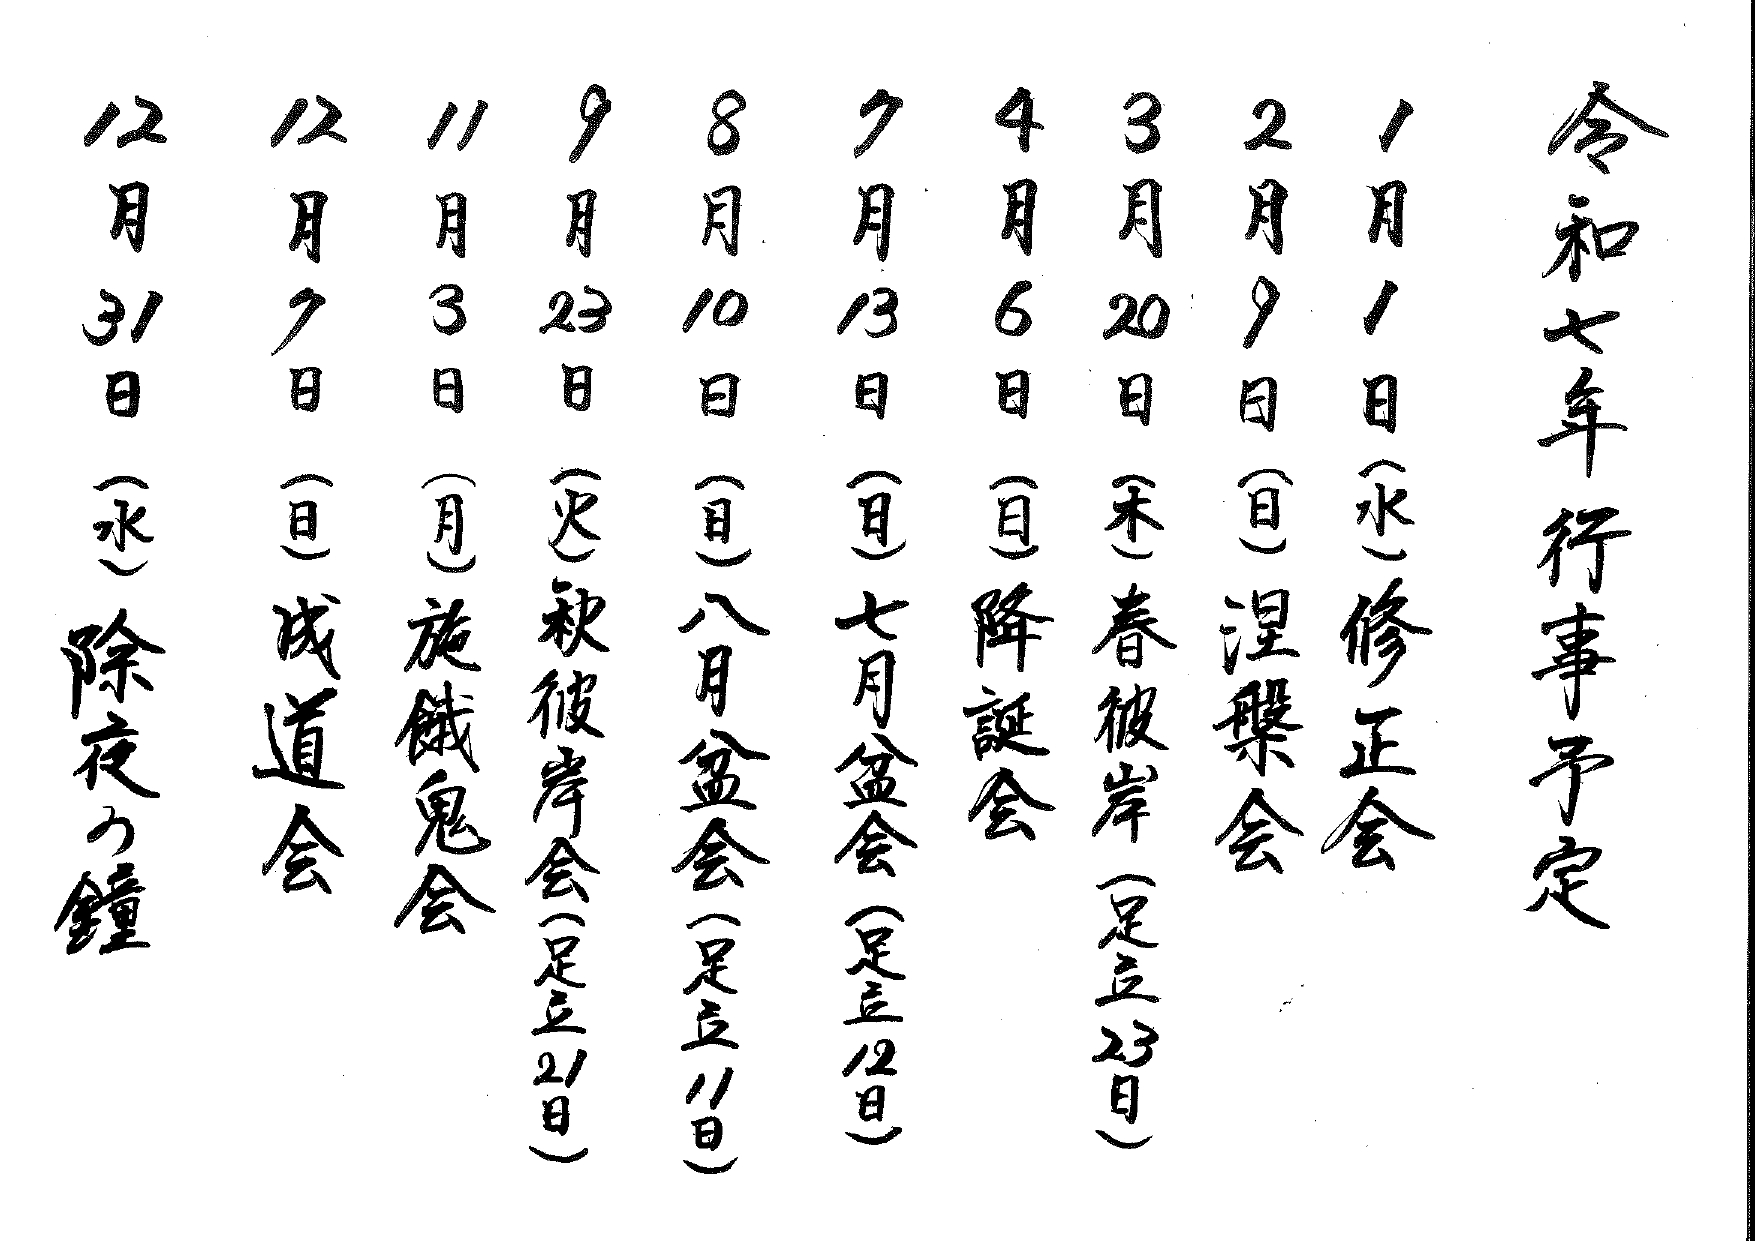 令和七年行事予定
1月1日（水）修正会
2月9日（日）涅槃会
3月20日（木）春彼岸（足立23日）
4月6日（日）降誕会
7月13日（日）七月盆会（足立12日）
8月10日（日）八月盆会（足立11日）
9月23日（火）秋彼岸会（足立21日）
11月3日（月）施餓鬼会
12月7日（日）成道会
12月31日（水）除夜の鐘